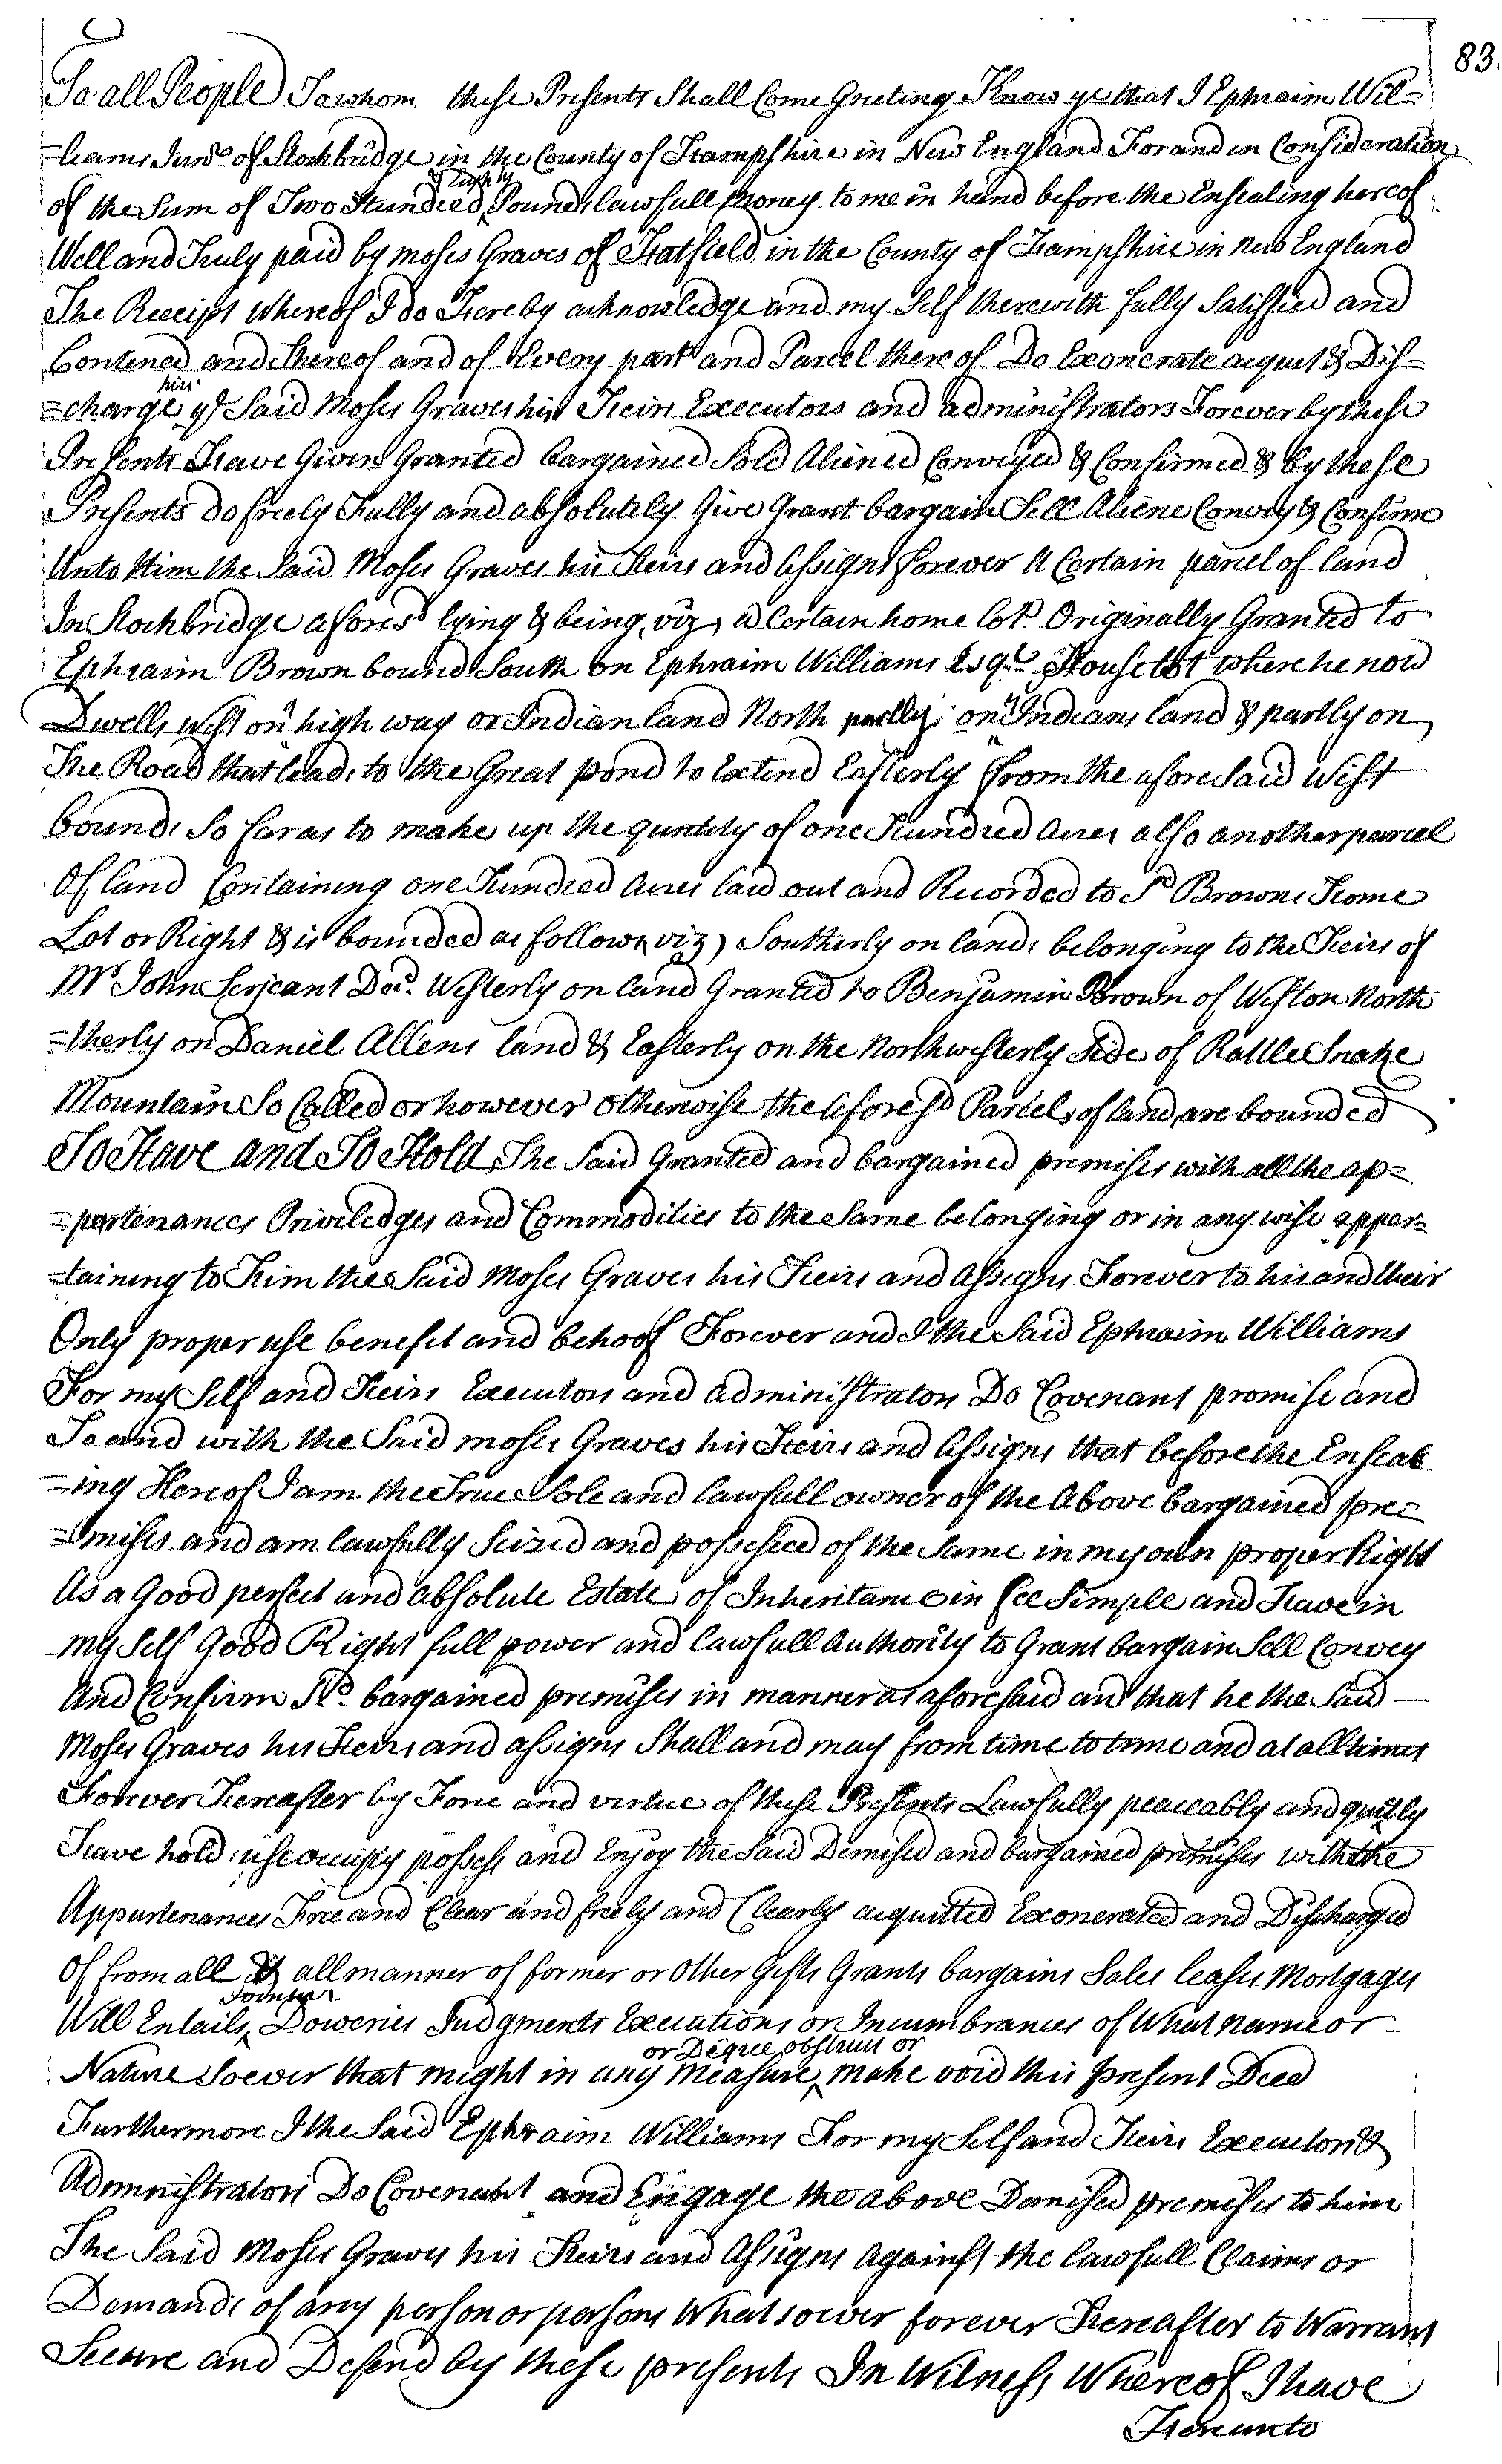 83.
To all People To whom these Presents Shall Come Greeting Know ye that I Ephraim Wil=
=liams Junr. of Stockbridge in the County of Hampshire in New England For and in Consideration
of the Sum of Two Hundred & Eighty Pounds lawfull money to me in hand before the Ensealing hereof
Well and Truly paid by Moses Graves of Hatfield in the County of Hampshire in New England
The Receipt Whereof I do Hereby acknowledge and my Self therewith fully Satisfied and
Contened and Thereof and of Every part and Parcel thereof Do Exonerate acquit & Dis=
=charge him ye Said Moses Graves his Heirs Executors and administrators Forever by these
Presents Have Given Granted bargained Sold Aliened Conveyed & Confirmed & by these
Presents do freely Fully and absolutely Give Grant bargain Sell Aliene Convey & Confirm
Unto Him the Said Moses Graves his Heirs and Assigns forever A Certain parcel of land
In Stockbridge aforesd lying & being viz, a Certain home lott Originally Granted to
Ephraim Brown bound South on Ephraim Williams Esqr. House lot where he now
Dwells West on high way or Indian land North partly on Indians land & partly on
The Road that leads to the Great pond to Extend Easterly from the aforesaid West
bounds So far as to make up the quntity of one Hundred Acres also another parcel
Of land Containing one Hundred Acres laid out and Recorded to Sd Browns Home
Lot or Right & is bounded as follows viz, Southerly on lands belonging to the Heirs of
Mr John Serjeant Decd. Westerly on land Granted to Benjamin Brown of Weston North
=therly on Daniel Allens land & Easterly on the Northwesterly Side of Rattle Snake
Mountain So Called or however otherwise the aforesd Parcels of land are bounded
To Have and To Hold The Said Granted and bargained premises with all the ap=
=pertenances Priviledges and Commodities to the Same belonging or in any wise apper=
=taining to Him the Said Moses Graves his Heirs and Assigns Forever to his and their
Only proper use benefit and behoof Forever and I the Said Ephraim Williams
For my Self and Heirs Executors and administrators Do Covenant promise and
To and with the Said Moses Graves his Heirs and Assigns that before the Enseal
=ing Hereof I am the True Sole and lawfull owner of the Above bargained pre=
=mises and am lawfully Seized and possessed of the Same in my own proper Right
As a Good perfect and absolute Estate of Inheritance in fee Simple and Have in
my Self Good Right full power and lawfull Authority to Grant bargain Sell Convey
And Confirm Sd. bargained premises in manner as aforesaid and that he the Said
Moses Graves his Heirs and assigns Shall and may from time to time and at all times
Forever Hereafter by Force and virtue of these Presents Lawfully peaceably and quitly
Have hold use occupy possess and Enjoy the Said Demised and bargained premises with the
Appurtenances Free and Clear and freely and Clearly acquitted Exonerated and Discharged
Of from all & all manner of former or other Gifts Grants bargains Sales leases Mortgages
Will Entails, Jointure Doweries Judgments Executions or Incumbrances of What name or
Nature Soever that might in any measure or Degree obstruct or make void this present Deed
Furthermore I the Said Ephraim Williams For my Self and Heirs Executors &
Administrators Do Covenant and Engage the above Demised premises to him
The Said Moses Graves his Heirs and Assigns Against the lawfull Claims or
Demands of any person or persons Whatsoever forever Hereafter to Warrant
Secure and Defend by these presents In Witness Whereof I have
Hereunto